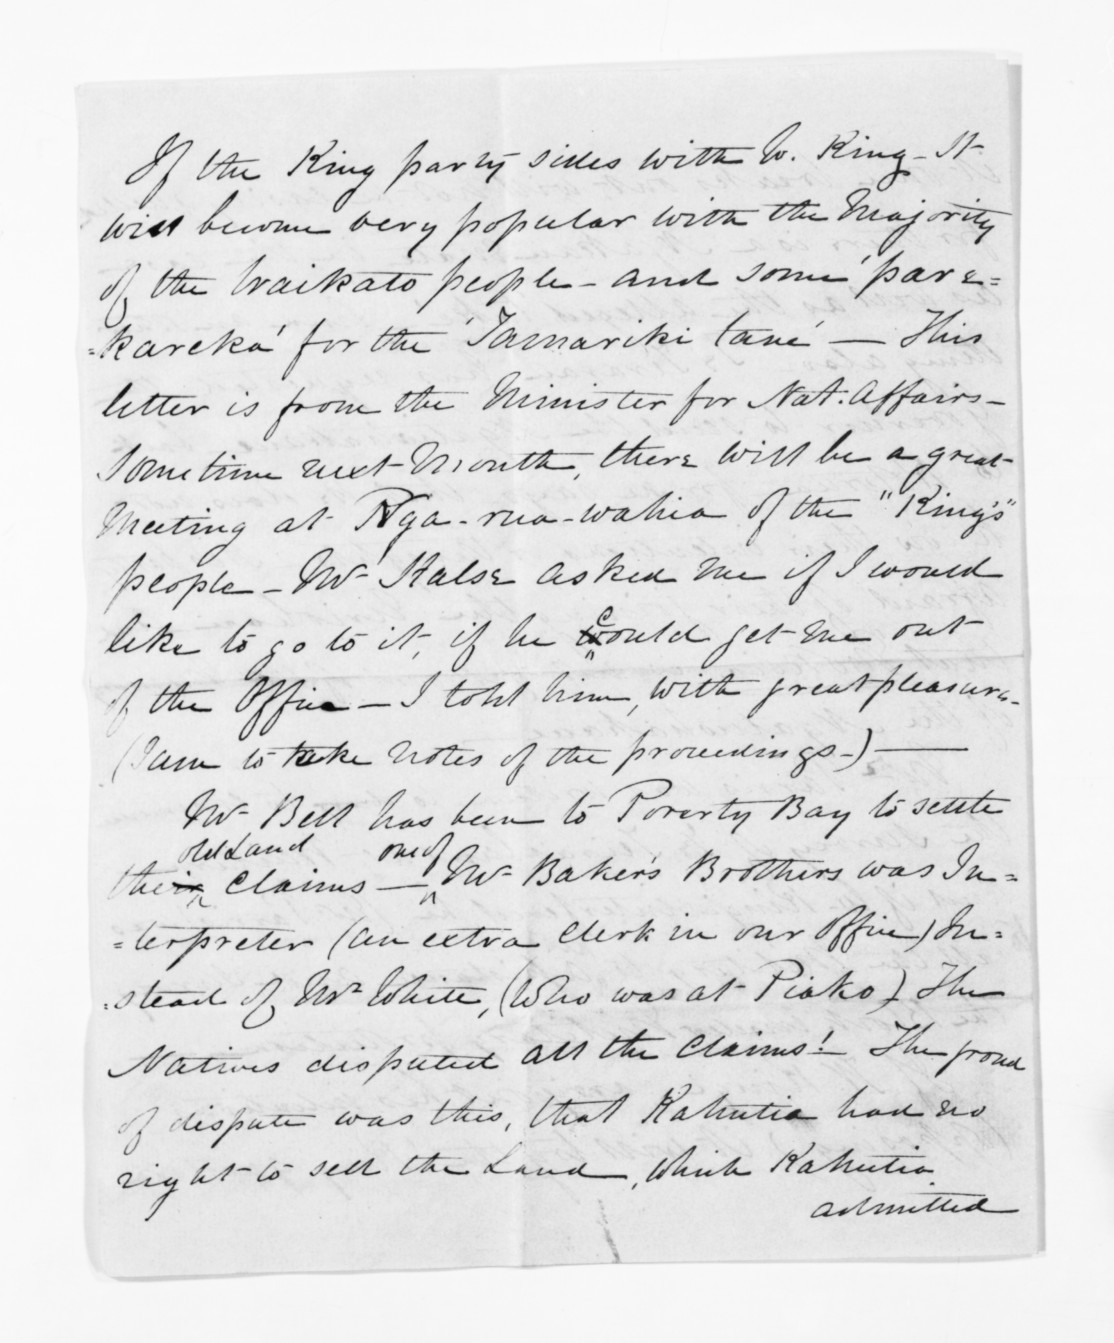 If the King party sides with W. King - It
will become very popular with the Majority
of the Waikato people - and some 'pare=
=kareka' for the 'Tamariki tane' — This
letter is from the Minister for Nat. Affairs -
Sometime next Month, there will be a great
Meeting at Nga-rua-wahia of the "King's"
people - Mr Halse asked me if I would
like to go to it, if he could get me out
of the Office - I told him, with great pleasure -
(I am to take notes of the proceedings -) —
Mr Bell has been to Poverty Bay to settle
old Land one of
their Claims — Mr Baker's Brothers was In=
=terpreter (an extra Clerk in our Office) In=
=stead of Mr White, (Who was at Piako) The
Natives disputed all the Claims! - The
of dispute was this, that Kahutia had no
right to sell the Land, Which Kahutia
admitted